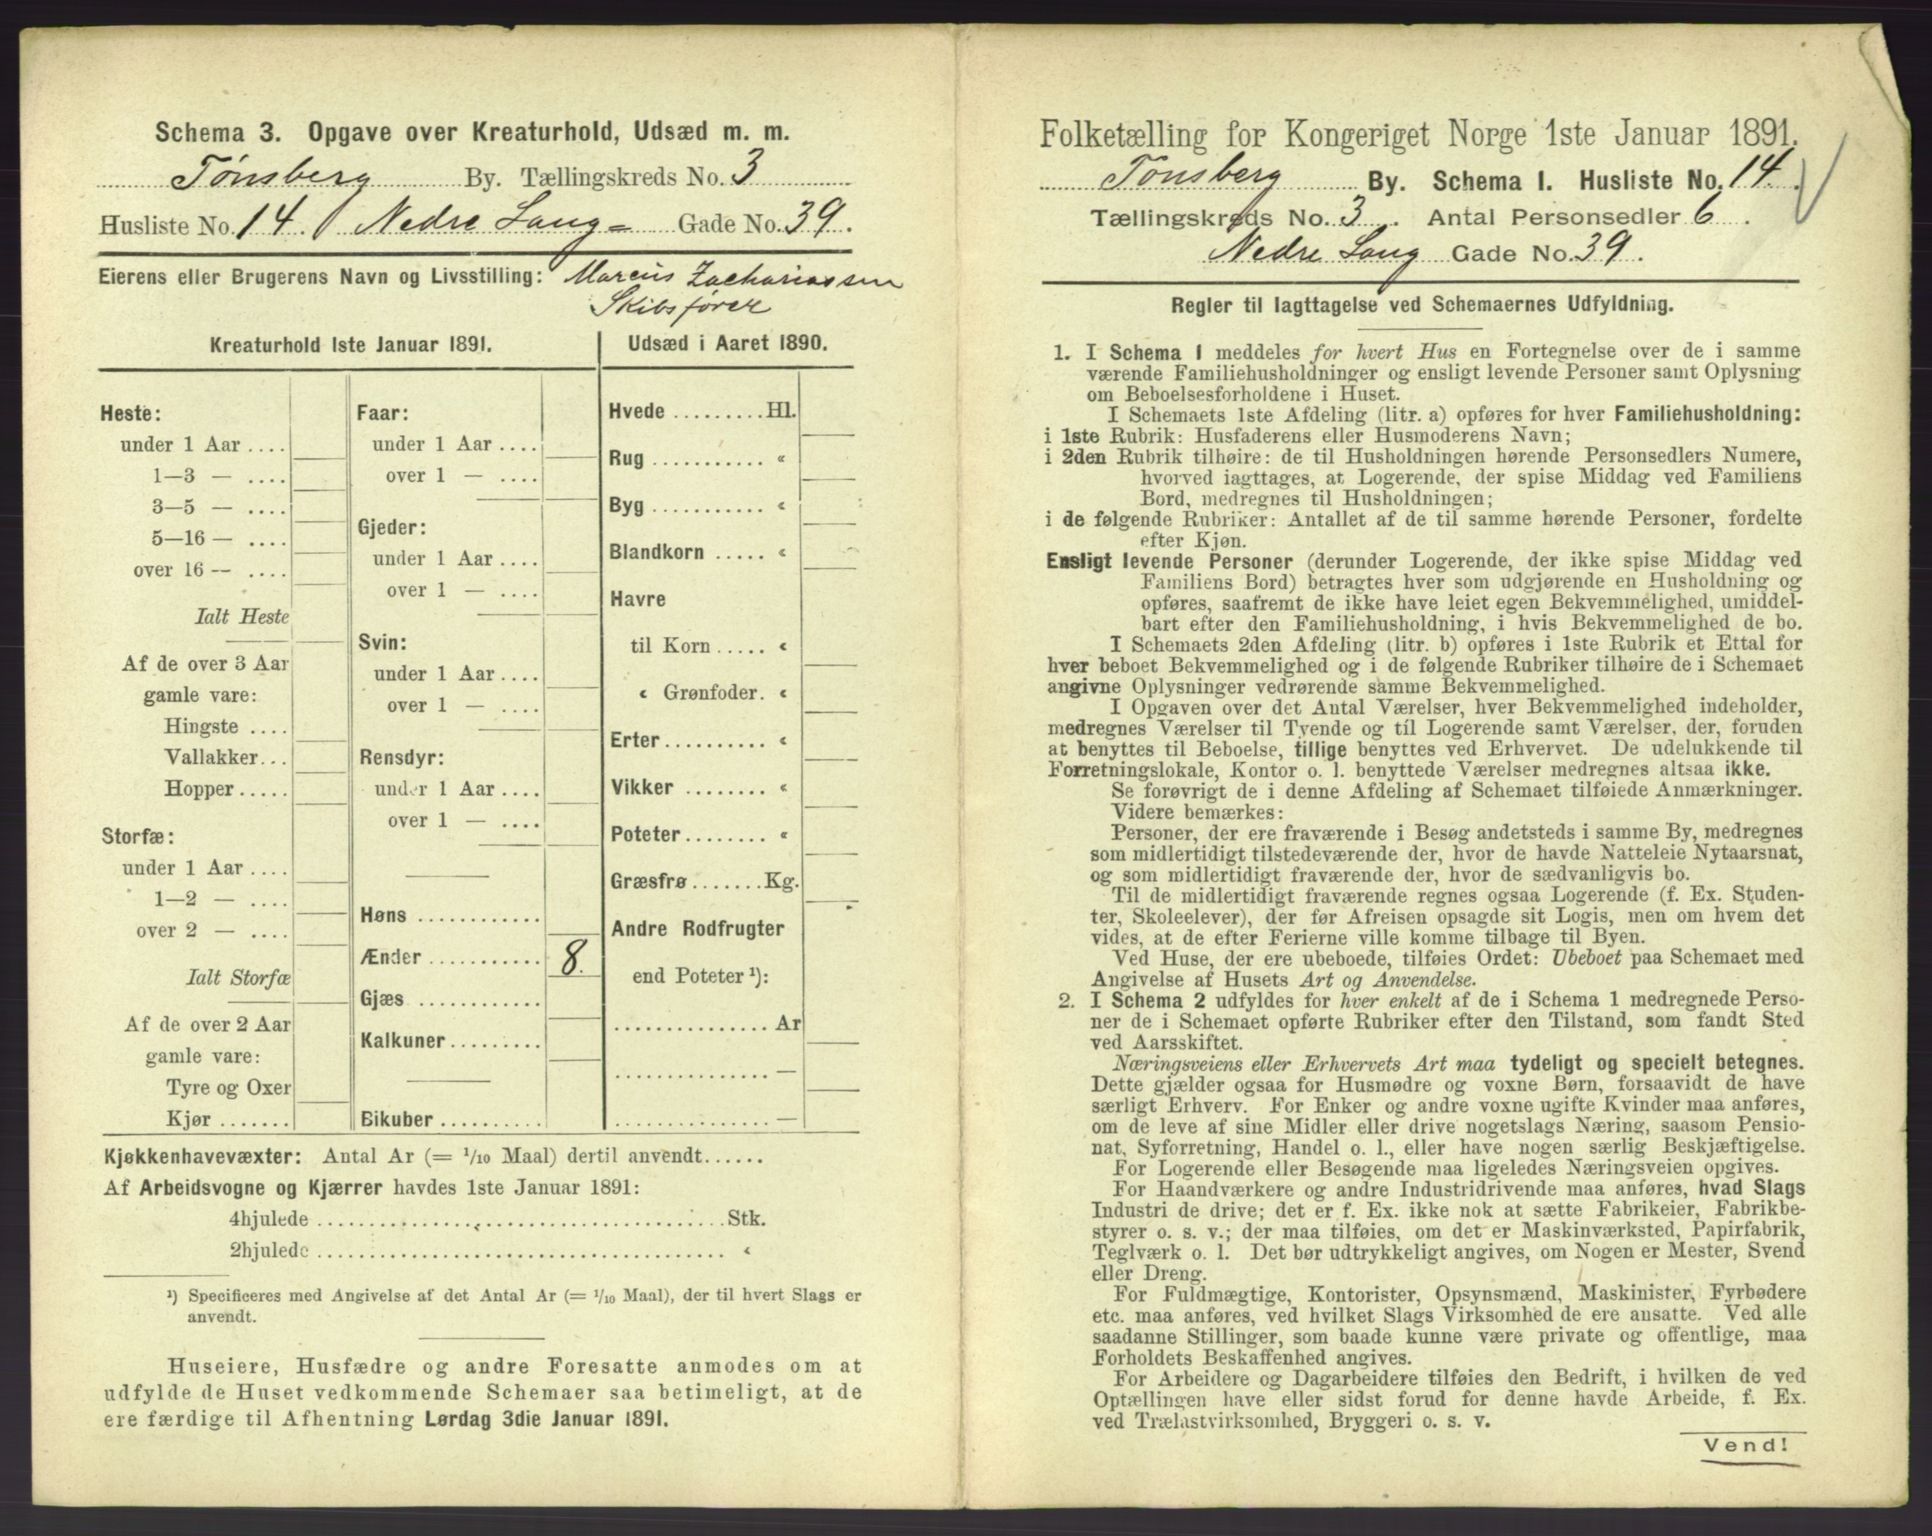 Schema 3. Opgave over Kreaturhold, Udsæd m. m.
Tønsberg By. Tællingskreds No. 3
Husliste No. 14. Nedre Lang= Gade No. 39.
Eierens eller Brugerens Navn og Livsstilling: Marcus Zachariassen
Skibsfører
Kreaturhold 1ste Januar 1891.
Heste:
under 1 Aar ....
1—3 — ....
3—5 — ....
5—16 — ....
over 16 — ....
Ialt Heste
Af de over 3 Aar
gamle vare:
Hingste ....
Vallakker...
Hopper.....
Storfæ:
under 1 Aar ....
1—2 — ....
over 2 — ....
Ialt Storfæ
Af de over 2 Aar
gamle vare:
Tyre og Oxer
Kjør .......
Faar:
under 1 Aar ....
over 1 — ....
Gjeder:
under 1 Aar ....
over 1 — ....
Svin:
under 1 Aar ....
over 1 — ....
Rensdyr:
under 1 Aar ....
over 1 — ....
Høns ............
Ænder ........... 8.
Gjæs ............
Kalkuner.........
Bikuber ..........
Udsæd i Aaret 1890.
Hvede .........Hl.
Rug ........... «
Byg ........... «
Blandkorn ..... «
Havre
til Korn ..... «
« Grønfoder. «
Erter.......... «
Vikker ........ «
Poteter........ «
Græsfrø.......Kg.
Andre Rodfrugter
end Poteter ¹):
............... Ar
............... —
............... —
Kjøkkenhavevæxter: Antal Ar (= 1/10 Maal) dertil anvendt......
Af Arbeidsvogne og Kjærrer havdes 1ste Januar 1891:
4hjulede ........................................Stk.
2hjulede ........................................ «
¹) Specificeres med Angivelse af det Antal Ar (= 1/10 Maal), der til hvert Slags er
anvendt.
Huseiere, Husfædre og andre Foresatte anmodes om at
udfylde de Huset vedkommende Schemaer saa betimeligt, at de
ere færdige til Afhentning Lørdag 3die Januar 1891.
Folketælling for Kongeriget Norge 1ste Januar 1891.
Tønsberg By. Schema I. Husliste No. 14.
Tællingskreds No. 3. Antal Personsedler 6.
Nedre Lang Gade No. 39.
Regler til Iagttagelse ved Schemaernes Udfyldning.
1. I Schema I meddeles for hvert Hus en Fortegnelse over de i samme
værende Familiehusholdninger og ensligt levende Personer samt Oplysning
om Beboelsesforholdene i Huset.
I Schemaets 1ste Afdeling (litr. a) opføres for hver Familiehusholdning:
i 1ste Rubrik: Husfaderens eller Husmoderens Navn;
i 2den Rubrik tilhøire: de til Husholdningen hørende Personsedlers Numere,
hvorved iagttages, at Logerende, der spise Middag ved Familiens
Bord, medregnes til Husholdningen;
i de følgende Rubriker: Antallet af de til samme hørende Personer, fordelte
efter Kjøn.
Ensligt levende Personer (derunder Logerende, der ikke spise Middag ved
Familiens Bord) betragtes hver som udgjørende en Husholdning og
opføres, saafremt de ikke have leiet egen Bekvemmelighed, umiddel-
bart efter den Familiehusholdning, i hvis Bekvemmelighed de bo.
I Schemaets 2den Afdeling (litr. b) opføres i 1ste Rubrik et Ettal for
hver beboet Bekvemmelighed og i de følgende Rubriker tilhøire de i Schemaet
angivne Oplysninger vedrørende samme Bekvemmelighed.
I Opgaven over det Antal Værelser, hver Bekvemmelighed indeholder,
medregnes Værelser til Tyende og til Logerende samt Værelser, der, foruden
at benyttes til Beboelse, tillige benyttes ved Erhvervet. De udelukkende til
Forretningslokale, Kontor o. l. benyttede Værelser medregnes altsaa ikke.
Se forøvrigt de i denne Afdeling af Schemaet tilføiede Anmærkninger.
Videre bemærkes:
Personer, der ere fraværende i Besøg andetsteds i samme By, medregnes
som midlertidigt tilstedeværende der, hvor de havde Natteleie Nytaarsnat,
og som midlertidigt fraværende der, hvor de sædvanligvis bo.
Til de midlertidigt fraværende regnes ogsaa Logerende (f. Ex. Studen-
ter, Skoleelever), der før Afreisen opsagde sit Logis, men om hvem det
vides, at de efter Ferierne ville komme tilbage til Byen.
Ved Huse, der ere ubeboede, tilføies Ordet: Ubeboet paa Schemaet med
Angivelse af Husets Art og Anvendelse.
2. I Schema 2 udfyldes for hver enkelt af de i Schema 1 medregnede Perso-
ner de i Schemaet opførte Rubriker efter den Tilstand, som fandt Sted
ved Aarsskiftet.
Næringsveiens eller Erhvervets Art maa tydeligt og specielt betegnes.
Dette gjælder ogsaa for Husmødre og voxne Børn, forsaavidt de have
særligt Erhverv. For Enker og andre voxne ugifte Kvinder maa anføres,
om de leve af sine Midler eller drive nogetslags Næring, saasom Pensio-
nat, Syforretning, Handel o. l., eller have nogen særlig Beskjæftigelse.
For Logerende eller Besøgende maa ligeledes Næringsveien opgives.
For Haandværkere og andre Industridrivende maa anføres, hvad Slags
Industri de drive; det er f. Ex. ikke nok at sætte Fabrikeier, Fabrikbe-
styrer o. s. v.; der maa tilføies, om det er Maskinværksted, Papirfabrik,
Teglværk o. l. Det bør udtrykkeligt angives, om Nogen er Mester, Svend
eller Dreng.
For Fuldmægtige, Kontorister, Opsynsmænd, Maskinister, Fyrbødere
etc. maa anføres, ved hvilket Slags Virksomhed de ere ansatte. Ved alle
saadanne Stillinger, som baade kunne være private og offentlige, maa
Forholdets Beskaffenhed angives.
For Arbeidere og Dagarbeidere tilføies den Bedrift, i hvilken de ved
Optællingen have eller sidst forud for denne havde Arbeide, f. Ex.
ved Trælastvirksomhed, Bryggeri o. s. v.
Vend!